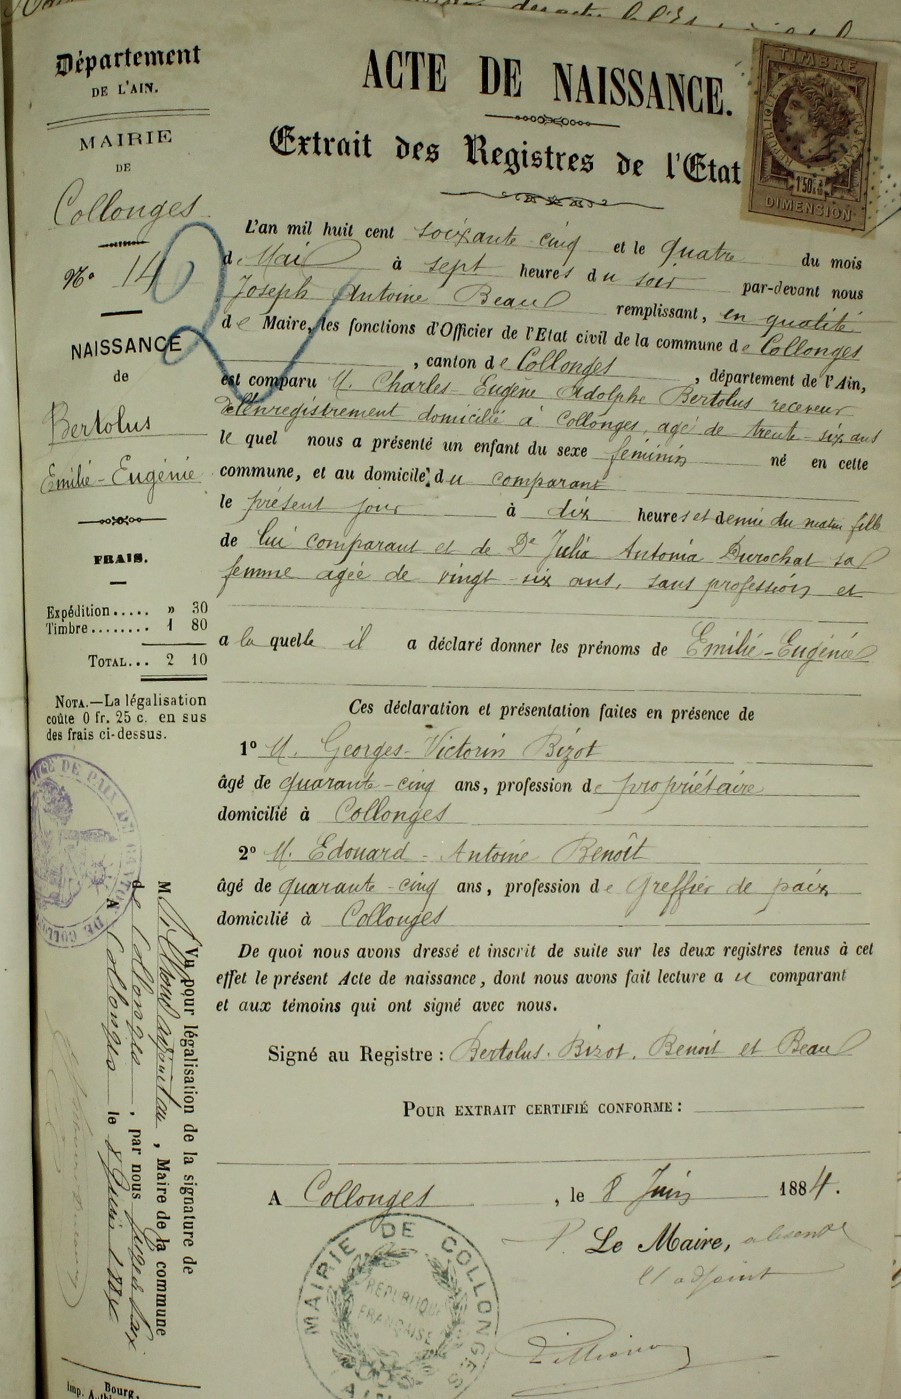 Département
DE L'AIN.
MAIRIE
DE
Collonges
N° 14
NAISSANCE
de
Bertolus
Emilié-Eugénie
FRAIS.
Expédition..... » 30
Timbre........ 1 80
TOTAL... 2 10
NOTA.—La légalisation
coûte 0 fr. 25 c. en sus
des frais ci-dessus.
JUGE DE PAIX DE CANTON DE COLLONGES
Vu pour légalisation de la signature de
M , Maire de la commune
de Collonges , par nous juge de paix
A Collonges le 8 Juin 1884
Imp.
Bourg,
ACTE DE NAISSANCE.
Extrait des Registres de l'Etat
TIMBRE
RÉPUBLIQUE FRANÇAISE
1F50c
DIMENSION
L'an mil huit cent soixante cinq et le quatre du mois
de Mai à sept heures du soir par-devant nous
Joseph Antoine Beaul remplissant, en qualité
de Maire, les fonctions d'Officier de l'Etat civil de la commune de Collonges
, canton de Collonges , département de l'Ain,
est comparu M. Charles-Eugène-Adolphe Bertolus receveur
de l'enregistrement domicilié à Collonges, agé de trente-six ans
le quel nous a présenté un enfant du sexe féminin né en cette
commune, et au domicile du comparant
le présent jour à dix heures et demie du matin fille
de lui comparant et de De Julia Antonia Durochat sa
femme agée de vingt-six ans, sans profession et
a la quelle il a déclaré donner les prénoms de Emilié-Eugénie
Ces déclaration et présentation faites en présence de
1° M. Georges-Victorin Bizot
âgé de quarante-cinq ans, profession de propriétaire
domicilié à Collonges
2° M. Edouard-Antoine Benoît
âgé de quarante-cinq ans, profession de Greffier de paix
domicilié à Collonges
De quoi nous avons dressé et inscrit de suite sur les deux registres tenus à cet
effet le présent Acte de naissance, dont nous avons fait lecture au comparant
et aux témoins qui ont signé avec nous.
Signé au Registre : Bertolus. Bizot. Benoit et Beaul
POUR EXTRAIT CERTIFIÉ CONFORME :
A Collonges , le 8 Juin 1884.
P. Le Maire, absent
l'adjoint
MAIRIE DE COLLONGES
RÉPUBLIQUE
FRANÇAISE
AIN